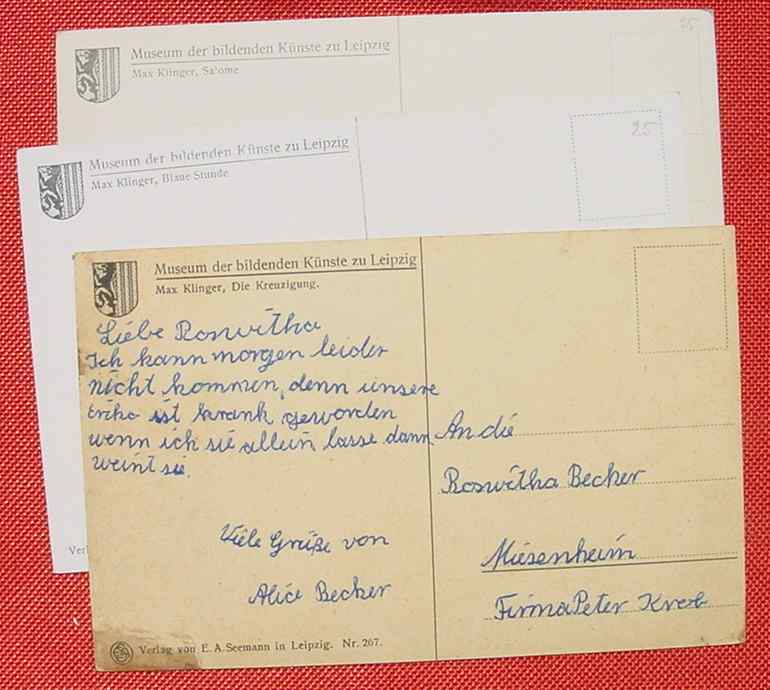 Museum der bildenden Künste zu Leipzig
Max Klinger, Salome
25
Museum der bildenden Künste zu Leipzig
Max Klinger, Blaue Stunde
25
Verl
Museum der bildenden Künste zu Leipzig
Max Klinger, Die Kreuzigung.
Liebe Roswitha
Ich kann morgen leider
nicht kommen, denn unsere
Erika ist krank geworden
wenn ich sie allein lasse dann
weint sie.
Viele Grüße von
Alice Becker
An die
Roswitha Becker
Miesenheim
Firma Peter
Verlag von E. A. Seemann in Leipzig. Nr. 267.